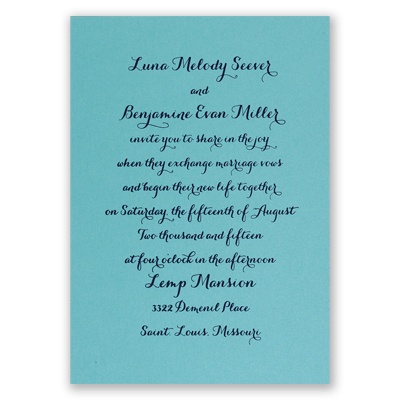 Luna Melody Seever
and
Benjamine Evan Miller
invite you to share in the joy
when they exchange marriage vows
and begin their new life together
on Saturday, the fifteenth of August
Two thousand and fifteen
at four o'clock in the afternoon
Lemp Mansion
3322 Demenil Place
Saint. Louis, Missouri